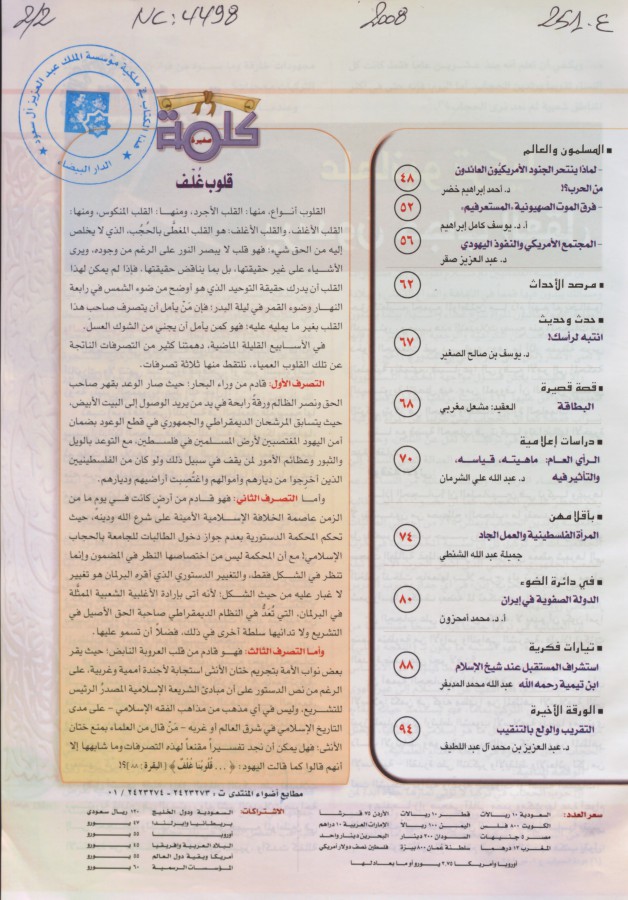 2/2
NC: 4498
2008
251.ع
هذا الكتاب في ملكية مؤسسة الملك عبد العزيز آل سعود
الدار البيضاء
■ المسلمون والعالم
- لماذا ينتحر الجنود الأمريكيون العائدون
من الحرب؟!
د. أحمد إبراهيم خضر
٤٨
- فرق الموت الصهيونية «المستعرفيم»
أ. د. يوسف كامل إبراهيم
٥٢
- المجتمع الأمريكي والنفوذ اليهودي
د. عبد العزيز صقر
٥٦
■ مرصد الأحداث
٦٢
■ حدث وحديث
انتبه لرأسك!
د. يوسف بن صالح الصغير
٦٧
■ قصة قصيرة
البطاقة
العقيد: مشعل مغربي
٦٨
■ دراسات إعلامية
الـرأي العـام: ماهيـتـه، قـيـاسـه،
والتأثير فيه
د. عبد الله علي الشرمان
٧٠
■ بأقلامهن
المرأة الفلسطينية والعمل الجاد
جميلة عبد الله الشنطي
٧٤
■ في دائرة الضوء
الدولة الصفوية في إيران
أ. د. محمد أمحزون
٨٠
■ تيارات فكرية
استشراف المستقبل عند شيخ الإسلام
ابن تيمية رحمه الله
عبد الله محمد المديفر
٨٨
■ الورقة الأخيرة
التقريب والولع بالتنقيب
د. عبد العزيز بن محمد آل عبد اللطيف
٩٤
كلمة
صغيرة
قلوب غُلْف
القلوب أنـواع، منها: القلب الأجرد، ومنهـا: القلب المنكوس، ومنها:
القلب الأغلف، والقلب الأغلف: هو القلب المغطَّى بالحُجُب، الذي لا يخلص
إليه من الحق شيء؛ فهو قلب لا يبصر النور على الرغم من وجوده، ويرى
الأشياء على غير حقيقتها، بل بما يناقض حقيقتها، فإذا لم يمكن لهذا
القلب أن يدرك حقيقة التوحيد الذي هو أوضح من ضوء الشمس في رابعة
النهـار وضوء القمر في ليلة البدر؛ فإن مَنْ يأمل أن يتصرف صاحب هذا
القلب بغير ما يمليه عليه؛ فهو كمن يأمل أن يجني من الشوك العسل.
في الأسـابيع القليلة الماضية، دهمتنا كثير من التصرفات الناتجة
عن تلك القلوب العمياء، نلتقط منها ثلاثة تصرفات.
التصرف الأول: قادم من وراء البحار؛ حيث سار الوعد بقهر صاحب
الحق ونصر الظالم ورقةً رابحة في يد من يريد الوصول إلى البيت الأبيض،
حيث يتسابق المرشحان الديمقراطي والجمهوري في قطع الوعود بضمان
أمن اليهود المغتصبين لأرض المسـلمين في فلسطين، مع التوعد بالويل
والثبور وعظائم الأمور لمن يقف في سبيل ذلك ولو كان من الفلسطينيين
الذين أخرجوا من ديارهم وأموالهم واغتُصِبت أراضيهم وديارهم.
وأمـا التصرف الثاني: فهو قادم من أرضٍ كانت في يوم ما من
الزمن عاصمة الخلافة الإسلامية الأمينة على شرع الله ودينه، حيث
تحكم المحكمة الدستورية بعدم جواز دخول الطالبات للجامعة بالحجاب
الإسلامي! مع أن المحكمة ليس من اختصاصها النظر في المضمون وإنما
تنظر في الشـكل فقط، والتغيير الدستوري الذي أقره البرلمان هو تغيير
لا غبار عليه من حيث الشكل؛ لأنه أتى بإرادة الأغلبية الشعبية الممثَّلة
في البرلمان، التي تُعَدُّ في النظام الديمقراطي صاحبة الحق الأصيل في
التشريع ولا تدانيها سلطة أخرى في ذلك، فضلاً أن تسمو عليها.
وأمـا التصرف الثالث: فهـو قادم من قلب العروبة النابض؛ حيث يقر
بعض نواب الأمة بتجريم ختان الأنثى استجابة لأجندة أممية وغربية، على
الرغم من نص الدستور على أن مبادئ الشريعة الإسلامية المصدرُ الرئيس
للتشريع، وليس في أي مذهب من مذاهب الفقه الإسلامي - على مدى
التاريخ الإسلامي في شرق العالم أو غربه - مَنْ قال من العلماء بمنع ختان
الأنثى؛ فهل يمكن أن نجد تفسيراً مقنعاً لهذه التصرفات وما شابهها إلا
أنهم قالوا كما قالت اليهود: ﴿ ... قُلُوبُنَا غُلْفٌ﴾ (البقرة: ٨٨)؟!
مطابع أضواء المنتدى ت: ٢٤٢٣٢٧٣ - ٢٤٢٣٢٧٤ / ٠١
سعر العدد:
السعودية ١٠ ريالات
الكويت ٨٠٠ فلس
مصر ٥ جنيهات
المغرب ١٣ درهمـا
قطـر ١٠ ريـالات
اليمن ١٠٠ ريـالا
السودان ٢٠٠ دينار
سلطنة عمان ٨٠٠ بيزة
الأردن ٧٥ قـرشـا
الإمارات العربية ١٠ دراهم
البحرين دينار واحد
فلسطين نصف دولار أمريكي
أوروبا وأمريكا ٢.٧٥ يورو أو ما يعادلها
الاشتراكات:
السعودية ودول الخليج ١٢٠ ريال سعودي
بريطانيا وإيرلندا ٤٣ يـورو
أوروبـا ٤٥ يـورو
البلاد العربية وإفريقيا ٤٥ يـورو
أمريكا وبقية دول العالم ٥٥ يـورو
المؤسسات الرسمية ٦٠ يـورو